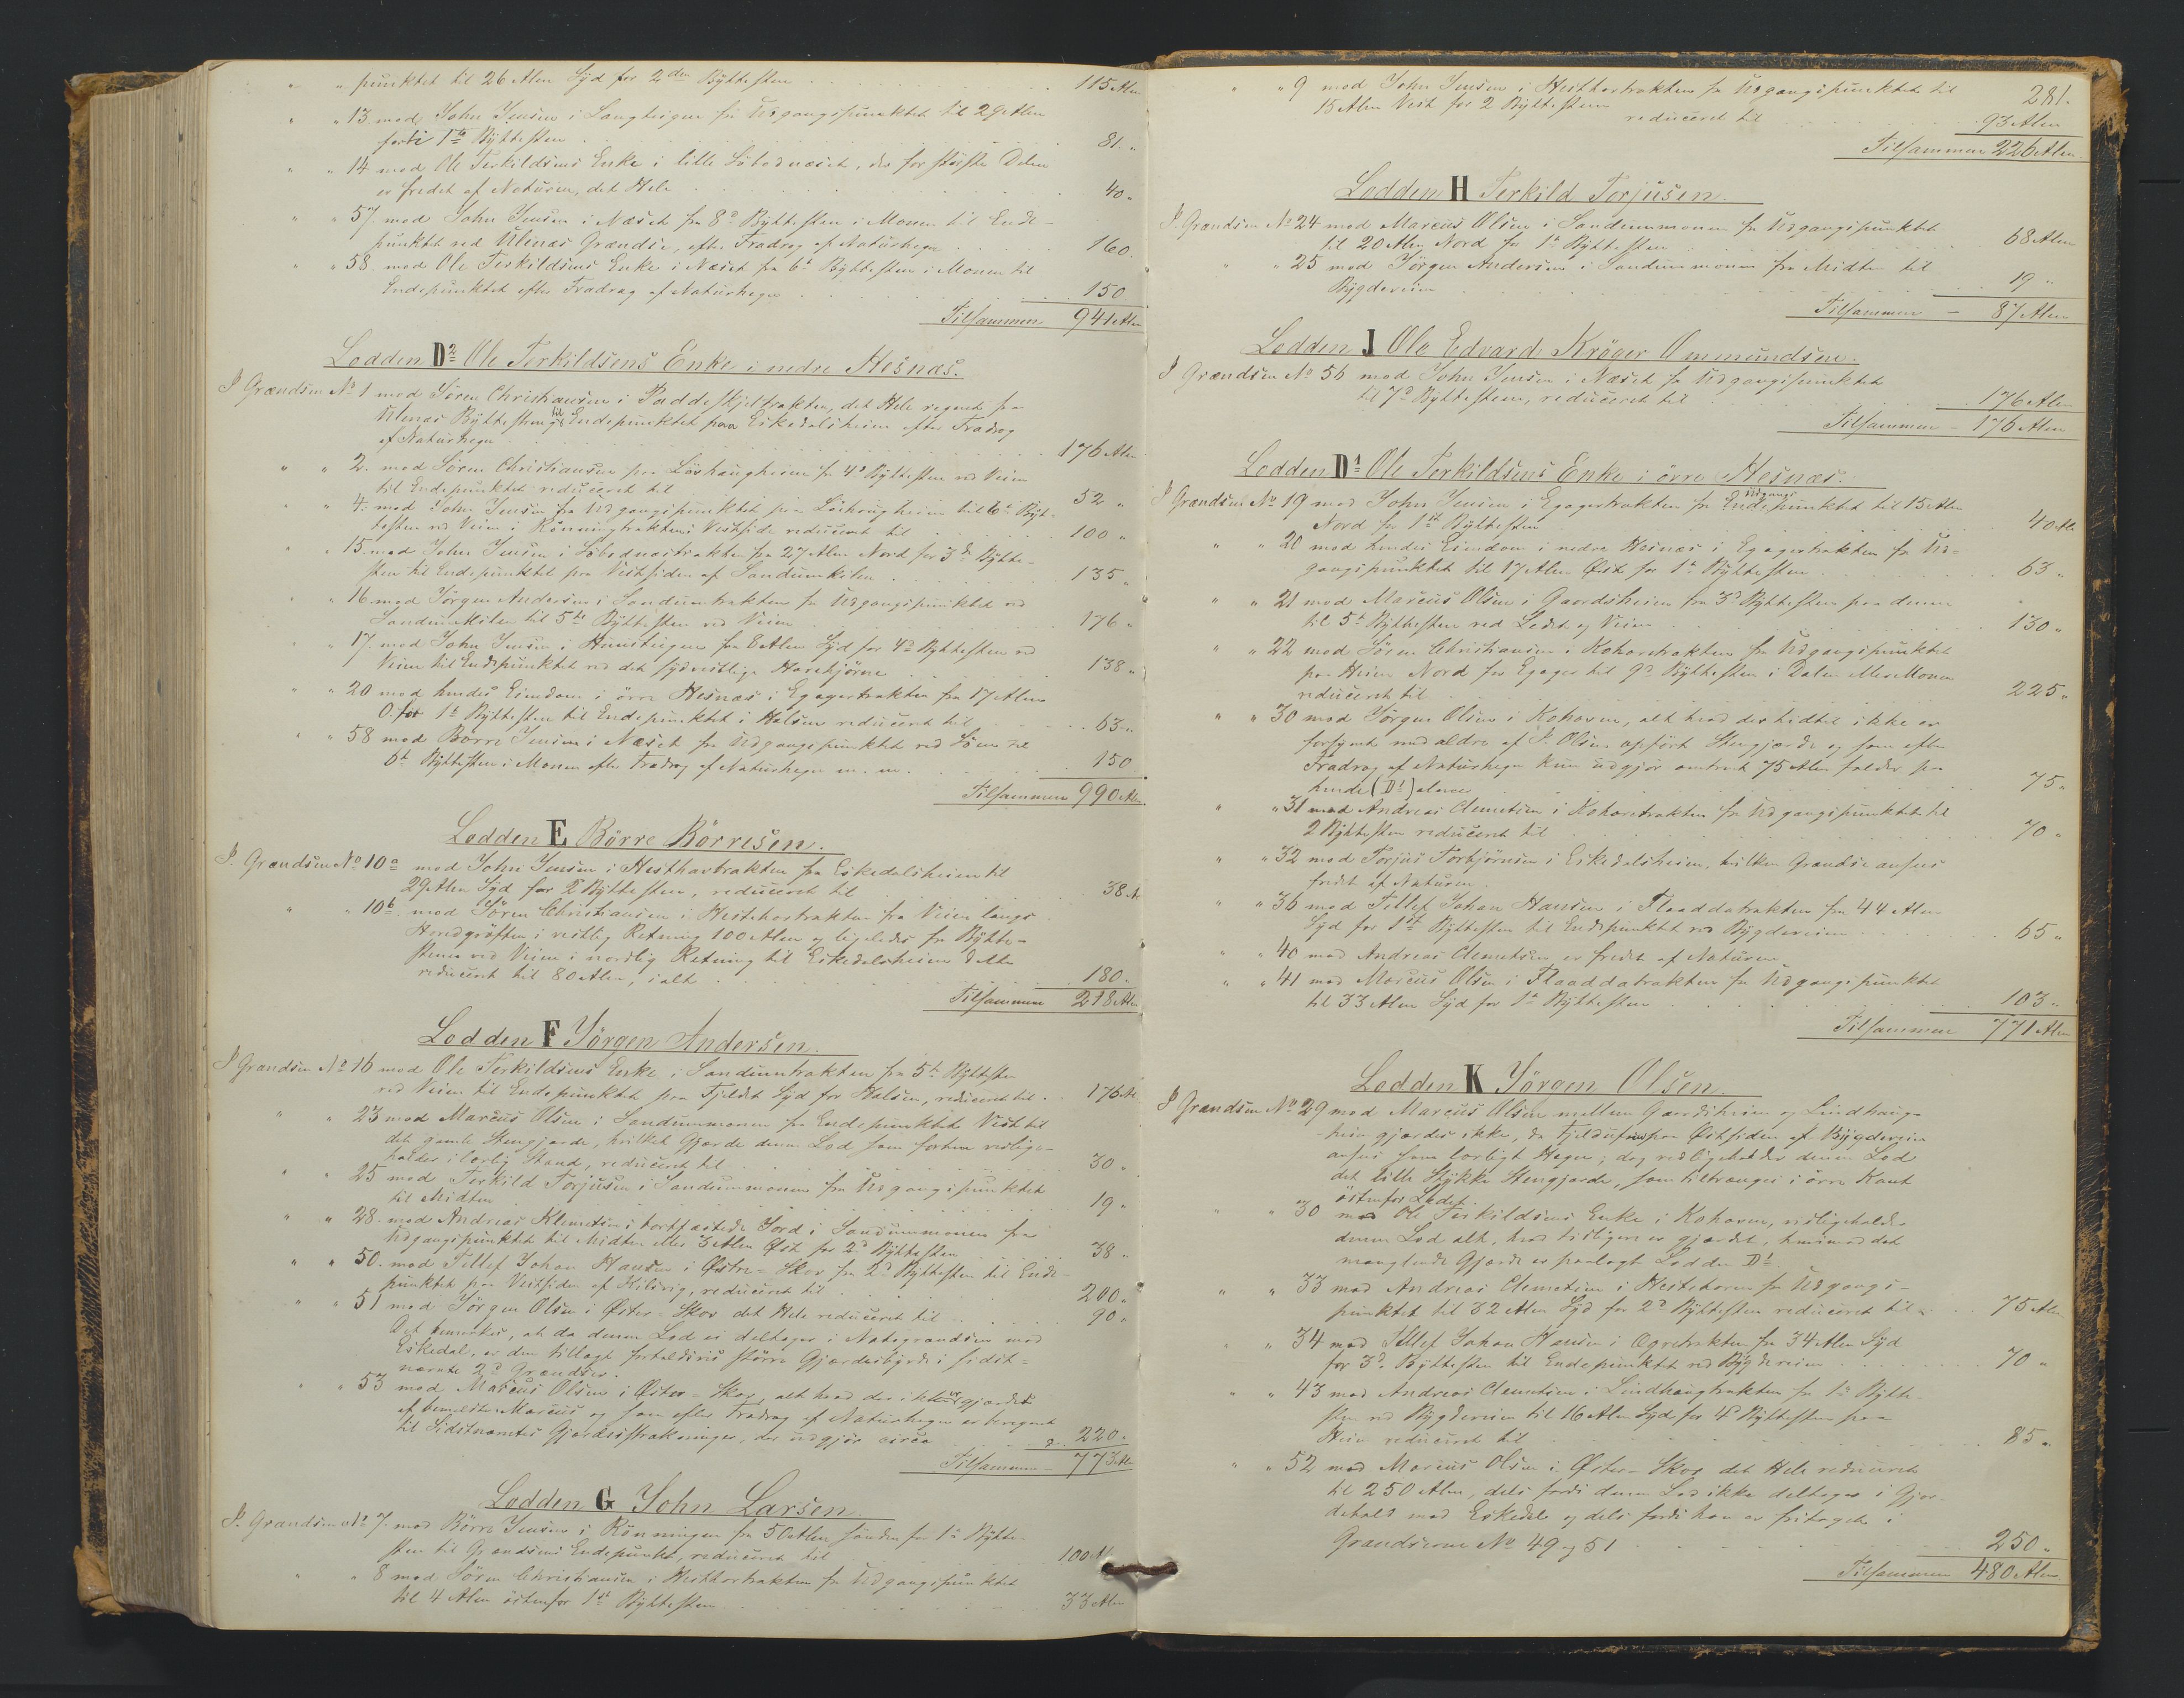 " " punktet til 26 Alen Syd for 2den Byttesten . . . 115 Alen
" " 13 mod John Jensen i Langteigen fra Udgangspunktet til 29 Alen
forbi 1ste Byttesten . . . 81 "
" " 14 mod Ole Terkildsens Enke i lille Söbodnæset, der for störste Delen
er fredet af Naturen, det Hele . . . 40 "
" " 57. mod John Jensen i Næset fra 8de Byttesten i Monen til Ende-
punktet ved Ulenæs Grændse, efter Fradrag af Naturhegn . . . 160.
" " 58. mod Ole Terkildsens Enke i Næset fra 6te Byttesten i Monen til
Endepunktet efter Fradrag af Naturhegn . . . 150
Tilsammen 941 Alen
Lodden D2 Ole Terkildsens Enke i nedre Hesnæs.
I Grændsen No 1 mod Sören Christiansen i Paddeskjeltrakten, det Hele regnet fra
Ulenæs Byttesteng til Endepunktet paa Eskedalsheien efter Fradrag
af Naturhegn . . . 176 Alen
" " 2. mod Sören Christiansen paa Löshaugheien fra 4de Byttesten ved Veien
til Endepunktet reduceret til . . . 52 "
" " 4. mod John Jensen fra Udgangspunktet paa Löshaugheien til 6te Byt-
testen ved Veien i Rönningtraktens Vestside reduceret til . . . 100 "
" " 15 mod John Jensen i Söbodnæstrakten fra 27 Alen Nord for 3de Bytte-
sten til Endepunktet paa Vestsiden af Sandumkilen . . . 135 "
" " 16 mod Jörgen Andersen i Sandumtrakten fra Udgangspunktet ved
Sandumkilen til 5te Byttesten ved Veien . . . 176 "
" " 17. mod John Jensen i Humsteigen fra 6 Alen Syd for 4de Byttesten ved
Veien til Endepunktet ved det sydvestlige Havehjörne . . . 138 "
" " 20 mod hendes Eiendom i övre Hesnæs i Egagertrakten fra 17 Alen
O. for 1te Byttesten til Endepunktet i Halsen reduceret til . . . 63 "
" " 58 mod Börre Jensen i Næset fra Udgangspunktet ved Söen til
6te Byttesten i Monen efter Fradrag af Naturhegn m. m. . . . 150
Tilsammen 990 Alen
Lodden E Börre Börresen.
I Grændsen No 10a mod John Jensen i Hesthavtrakten fra Eskedalsheien til
29 Alen Syd for 2 Byttesten, reduceret til . . . 38 A
" " 10b. mod Sören Christiansen i Hestehavtrakten fra Veien langs
Hovedgröften i vestlig Retning 100 Alen og ligeledes fra Bytte-
stenen ved Veien i nordlig Retning til Eskedalsheien dette
reduceret til 80 Alen, ialt . . . 180 "
Tilsammen 218 Alen
Lodden F Jörgen Andersen.
I Grændsen No 16 mod Ole Terkildsens Enke i Sandumtrakten fra 5te Byttesten
ved Veien til Endepunktet paa Fjeldet Syd for Halsen, reduceret til . . 176 Al
" " 23 mod Marcus Olsen i Sandummonen fra Endepunktet Vest til
det gamle Stengjærde, hvilket Gjærde denne Lod som forhen vedlige-
holder i lovlig Stand, reduceret til . . . 30 "
" " 25 mod Terkild Torjusen i Sandummonen fra Udgangspunktet
til Midten . . . 19 "
" " 28. mod Andreas Klemetsens bortfæstede Jord i Sandummonen fra
Udgangspunktet til Midten eller 3 Alen Öst for 2d Byttesten . . . 38 "
" " 50. mod Tellef Johan Hansen i Östre-Skov fra 2d Byttesten til Ende-
punktet paa Vestsiden af Hilsvig, reduceret til . . . 200 "
" " 51 mod Jörgen Olsen i Öster-Skov det Hele reduceret til . . . 90 "
Det bemærkes, at da denne Lod ei deltager i Nabogrændsen mod
Eskedal, er den tillagt forholdsvis större Gjærdesbyrde i sidst-
nævnte 2de Grændser.
" " 53 mod Marcus Olsen i Öster-Skov, alt hvad der ikke er gjærdet
af bemeldte Marcus og som efter Fradrag af Naturhegn er beregnet
til Sidstnævntes Gjærdesstrækninger, der udgjör circa . . . 220 "
Tilsammen 773 Alen
Lodden G John Larsen.
I Grændsen No 7. mod Börre Jensen i Rönningen fra 50 Alen sönden for 1te Bytte-
sten til Grændsens Endepunkt, reduceret til . . . 100 Al
" " 8 mod Sören Christiansen i Hesthavtrakten fra Udgangspunktet
til 4 Alen östenfor 1te Byttesten . . . 33 Alen
281.
" " 9 mod John Jensen i Hesthavtrakten fra Udgangspunktet til
15 Alen Vest for 2 Byttesten reduceret til . . . 93 Alen
Tilsammen 226 Alen
Lodden H Terkild Torjusen.
I Grændsen No 24 mod Marcus Olsen i Sandummonen fra Udgangspunktet
til 20 Alen Nord for 1te Byttesten . . . 68 Alen
" " 25 mod Jörgen Andersen i Sandummonen fra Midten til
Bygdeveien . . . 19 "
Tilsammen - 87 Alen
Lodden J Ole Edvard Kröger Ommundsen.
I Grændsen No 56 mod John Jensen i Næset fra Udgangspunktet
til 7de Byttesten, reduceret til . . . 176 Alen
Tilsammen - 176 Alen
Lodden D1 Ole Terkildsens Enke i övre Hesnæs.
I Grændsen No 19 mod John Jensen i Egagertrakten fra Udgangspunktet til 15 Alen
Nord for 1ste Byttesten . . . 40 Al
" " 20 mod hendes Eiendom i nedre Hesnæs i Egagertrakten fra Ud-
gangspunktet til 17 Alen Öst for 1te Byttesten . . . 63 "
" " 21 mod Marcus Olsen i Gaardsheien fra 3de Byttesten paa denne
til 5te Byttesten ved Ledet og Veien . . . 130 "
" " 22 mod Sören Christiansen i Kohavetrakten fra Udgangspunktet
paa Heien Nord for Egager til 9de Byttesten i Dalen
reduceret til . . . 225 "
" " 30 mod Jörgen Olsen i Kohaven, alt hvad der hidtil ikke er
forsynet med ældre af J. Olsen opfört Stengjærde og som efter
Fradrag af Naturhegn kun udgjör omtrent 75 Alen falder paa
hende (D1) alene . . . 75 "
" " 31 mod Andreas Clemetsen i Kohavetrakten fra Udgangspunktet til
2 Byttesten reduceret til . . . 70 "
" " 32 mod Torjus Torbjörnsen i Eskedalsheien, hvilken Grændse ansees
fredet af Naturen.
" " 36 mod Tellef Johan Hansen i Flaaddatrakten fra 44 Alen
Syd for 1ste Byttesten til Endepunktet ved Bygdeveien . . . 65 "
" " 40 mod Andreas Clemetsen er fredet af Naturen
" " 41 mod Marcus Olsen i Flaaddatrakten fra Udgangspunktet
til 33 Alen Syd for 1te Byttesten . . . 103 "
Tilsammen 771 Alen
Lodden K Jörgen Olsen.
I Grændsen No 29 mod Marcus Olsen mellem Gaardsheien og Lindhaug-
heien gjærdes ikke, da Fjeldufsen paa Östsiden af Bygdeveien
ansees som lovligt Hegn; dog vedligeholder denne Lod
det lille Stykke Stengjærde, som tiltrænges i övre Kant
östenfor Ledet.
" " 30 mod Ole Terkildsens Enke i Kohaven, vedligeholder
denne Lod alt, hvad tidligere er gjærdet, hvorimod det
manglende Gjærde er paalagt Lodden D1.
" " 33 mod Andreas Clemetsen i Hestehaven fra Udgangs-
punktet til 32 Alen Syd for 2de Byttesten reduceret til . . 75 Alen
" " 34 mod Tellef Johan Hansen i fra 34 Alen Syd
for 3de Byttesten til Endepunktet ved Bygdeveien . . . 70 "
" " 43 mod Andreas Clemetsen i Lindhaugtrakten fra 1te Bytte-
sten ved Bygdeveien til 16 Alen Syd for 4de Byttesten paa
Heien reduceret til . . . 85 "
" " 52 mod Marcus Olsen i Öster-Skov det Hele reduceret
til 250 Alen, dels fordi denne Lod ikke deltager i Gjær-
dehold mod Eskedal og dels fordi han er fritaget i
Grændserne No 49 og 51 . . . 250 "
Tilsammen 480 Alen